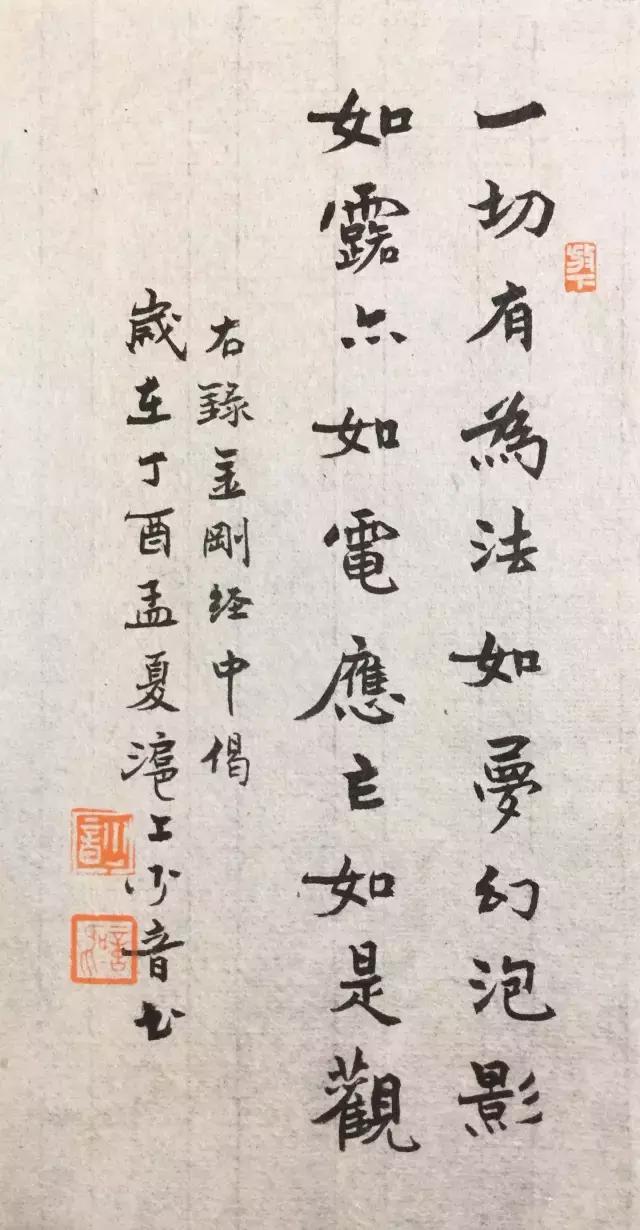 一切有為法如夢幻泡影
如露亦如電應亡如是觀
右錄金剛经中偈
歲在丁酉孟夏滬上音书